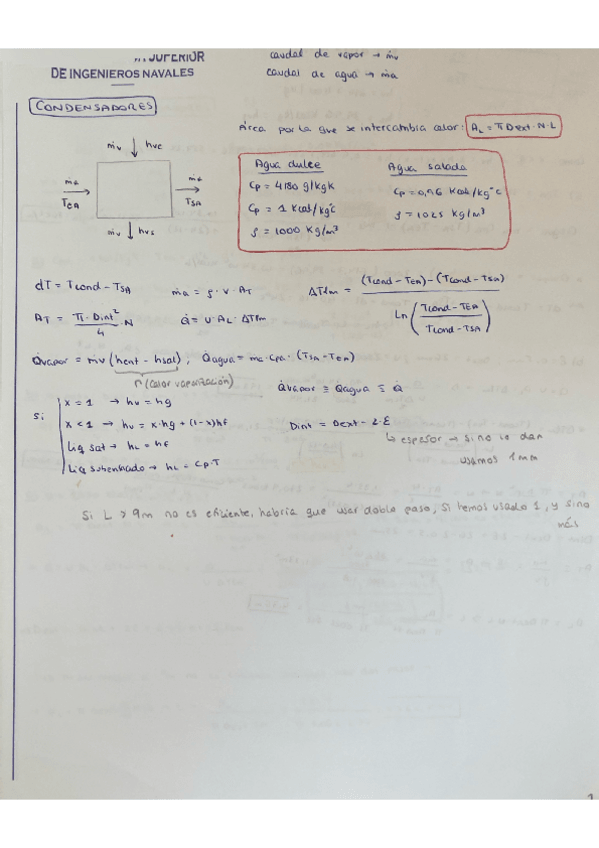 SUPERIOR
DE INGENIEROS NAVALES
caudal de vapor → ṁv
caudal de agua → ṁa
CONDENSADORES
Área por la que se intercambia calor: AL = π Dext · N · L
ṁv ↓ hvc
ṁa →
TEA
ṁa →
TSA
ṁv ↓ hvs
Agua dulce
Cp = 4180 J/kgK
Cp = 1 Kcal/kg°C
ρ = 1000 Kg/m³
Agua salada
Cp = 0,96 Kcal/kg°C
ρ = 1025 Kg/m³
dT = Tcond - TSA
ṁa = ρ · v · AT
ΔTlm = (Tcond - TEA) - (Tcond - TSA) / Ln (Tcond - TEA / Tcond - TSA)
AT = π · Dint² / 4 · N
Q̇ = U · AL · ΔTlm
Q̇vapor = ṁv (hent - hsal) , Q̇agua = ma · Cpa · (TSA - TEA)
r (calor vaporización)
Q̇vapor ≡ Q̇agua ≡ Q̇
Si
x = 1 → hv = hg
x < 1 → hv = x·hg + (1-x)hf
Liq sat → hL = hf
Liq subenfriado → hL = Cp·T
Dint = Dext - 2·ε
↳ espesor → si no lo dan
usamos 1mm
Si L > 9m no es eficiente, habría que usar doble paso, si hemos usado 1, y sino
más
1